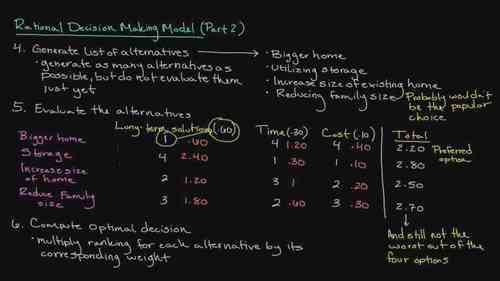 Rational Decision Making Model (Part 2)
4. Generate list of alternatives
• generate as many alternatives as
possible, but do not evaluate them
just yet
• Bigger home
• Utilizing storage
• Increase size of existing home
• Reducing family size
Probably wouldn't
be the popular
choice
5. Evaluate the alternatives
Long-term solution (.60) Time (.30) Cost (.10) Total
Bigger home 1 .60 4 1.20 4 .40 2.20 Preferred
option
Storage 4 2.40 1 .30 1 .10 2.80
Increase size
of home 2 1.20 3 1 2 .20 2.50
Reduce Family
size 3 1.80 2 .60 3 .30 2.70
And still not the
worst out of the
four options
6. Compute optimal decision
• multiply ranking for each alternative by its
corresponding weight